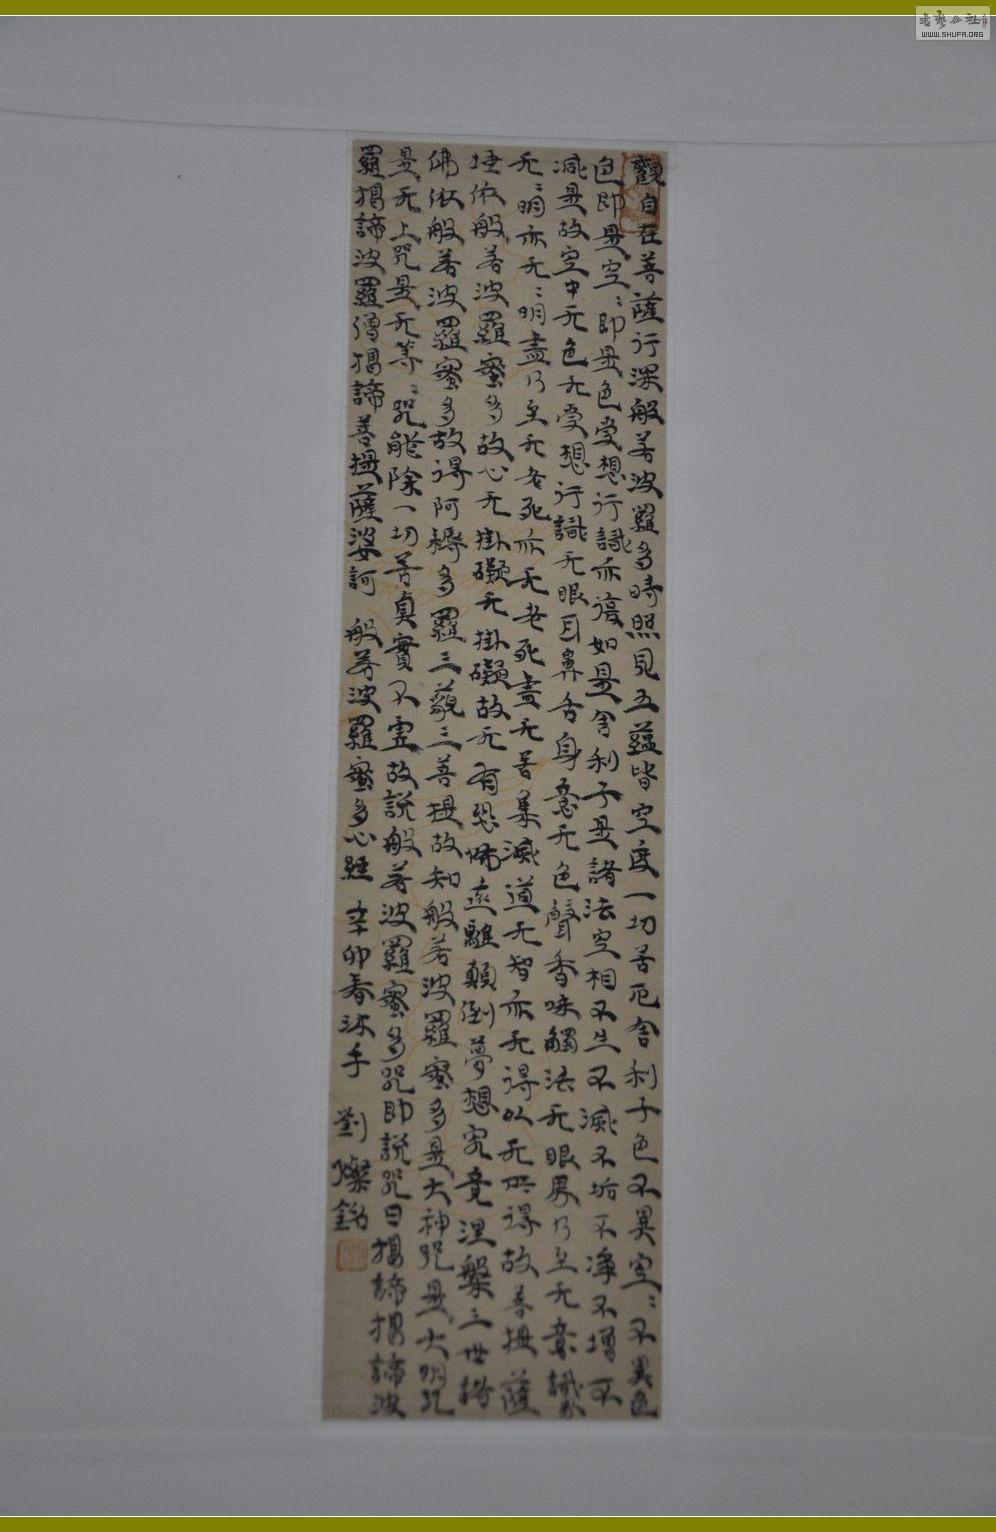 觀自在菩薩行深般若波羅多時照見五蘊皆空度一切苦厄舍利子色不異空〻不異色
色即是空〻即是色受想行識亦復如是舍利子是諸法空相不生不滅不垢不净不增不
减是故空中无色无受想行識无眼耳鼻舌身意无色聲香味觸法无眼界乃至无意識界
无〻明亦无〻明盡乃至无老死亦无老死盡无苦集滅道无智亦无得以无所得故菩提薩
埵依般若波羅蜜多故心无掛礙无掛礙故无有恐怖遠離顛倒夢想究竟涅槃三世諸
佛依般若波羅蜜多故得阿耨多羅三藐三菩提故知般若波羅蜜多是大神咒是大明咒
是无上咒是无等〻咒能除一切苦真實不虛故説般若波羅蜜多咒即説咒曰揭諦揭諦波
羅揭諦波羅僧揭諦菩提薩婆訶 般若波羅蜜多心經 辛卯春沐手 劉燦銘
書藝公社
WWW.SHUFA.ORG